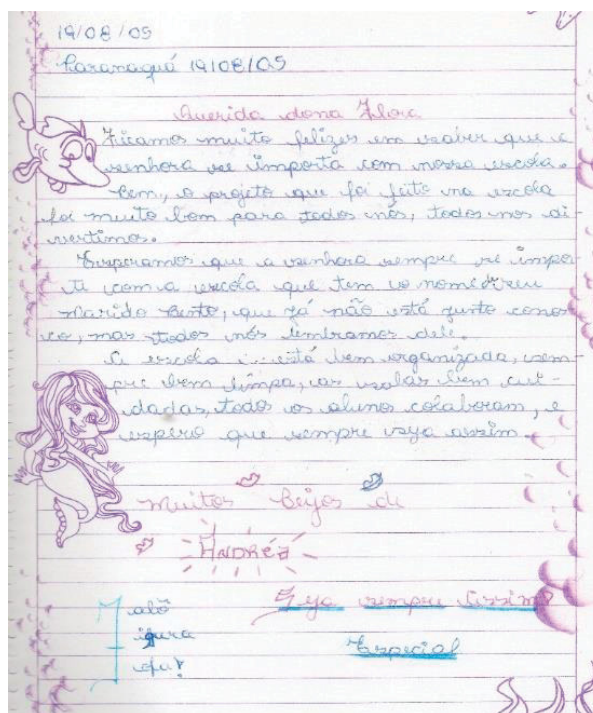 19/08/05
Paranaguá 19/08/05
Querida dona Flora
Ficamos muito felizes em saber que a
senhora se importa com nossa escola.
Bem, o projeto que foi feito na escola
foi muito bom para todos nós, todos nos di-
vertimos.
Esperamos que a senhora sempre se impor
te com a escola que tem o nome
marido Bento, que já não está junto cono
co, mas todos nós lembramos dele.
A escola ... está bem organizada, sem-
pre bem limpa, as salas bem cui-
dadas, todo os alunos colaboram, e
espero que sempre seja assim.
Muitos beijos de
Andréa
Seja sempre assim
Especial